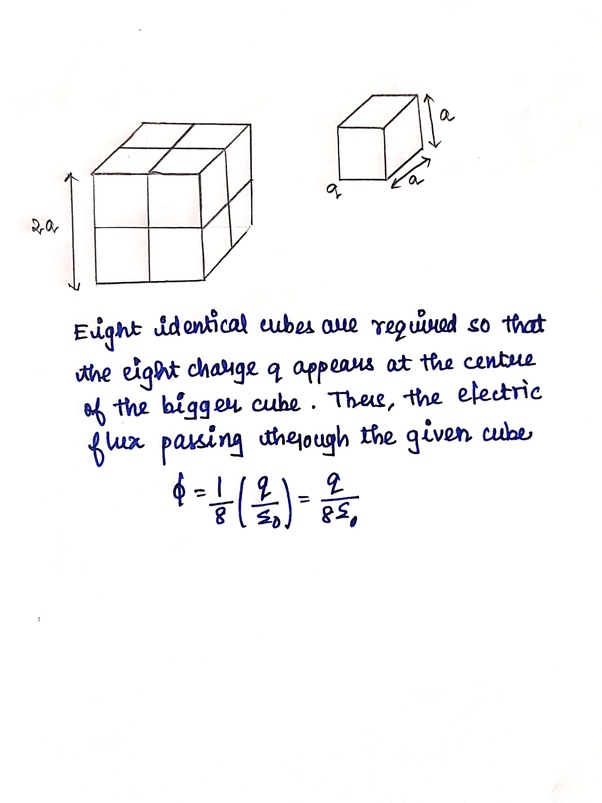 a
a
q
2a
Eight identical cubes are required so that
the eight charge q appears at the centre
of the bigger cube. Thus, the electric
flux passing through the given cube
ϕ = 1/8 (q/ε₀) = q/8ε₀